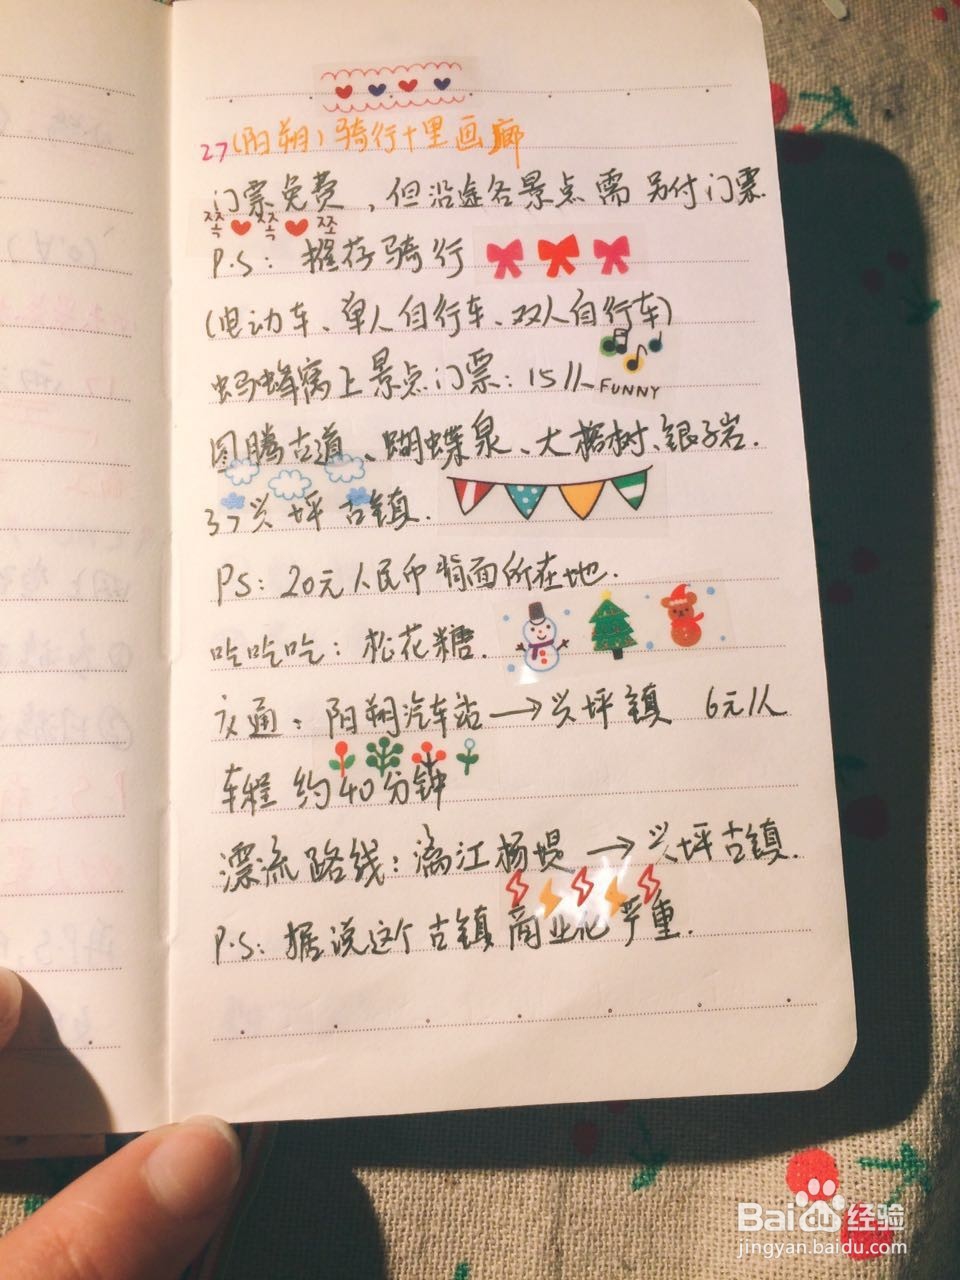 27(阳朔)骑行十里画廊
门票免费，但沿途各景点需另付门票
P.S：推荐骑行
(电动车、单人自行车、双人自行车)
蚂蜂窝上景点门票：15/人
FUNNY
图腾古道、蝴蝶泉、大榕树、银子岩.
37兴坪古镇.
PS：20元人民币背面所在地.
吃吃吃：松花糖.
交通：阳朔汽车站→兴坪镇 6元/人
车程约40分钟
漂流路线：漓江杨堤→兴坪古镇.
P.S：据说这个古镇商业化严重.
Baidu经验
jingyan.baidu.com